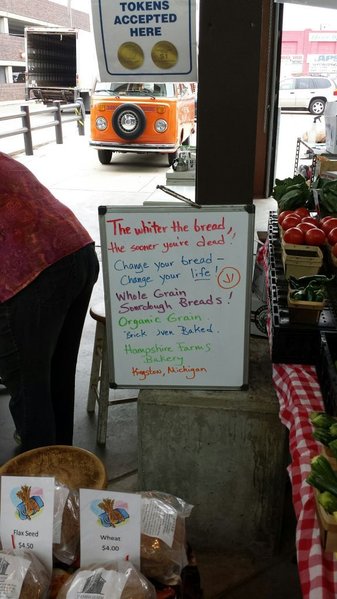 TOKENS
ACCEPTED
HERE
The whiter the bread
the sooner you're dead!!
Change your bread -
Change your life!
Whole Grain
Sourdough Breads!
Organic Grain
Brick Oven Baked.
Hampshire Farms
Bakery
Kingston, Michigan
Flax Seed
$4.50
Wheat
$4.00